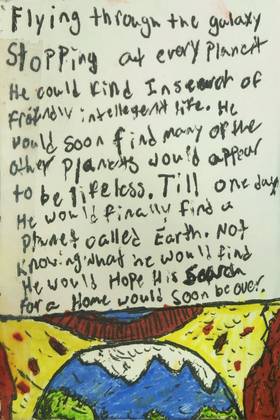 Flying through the galaxy
Stopping at every Planent
He could Kind Insearch of
Freindly intellegent life. He
would soon find many of the
other Planets would appear
to be lifeless. Till one day
He would finally find a
planet called Earth. Not
Knowing what he would find
He would Hope His Search
For a Home would soon be over.